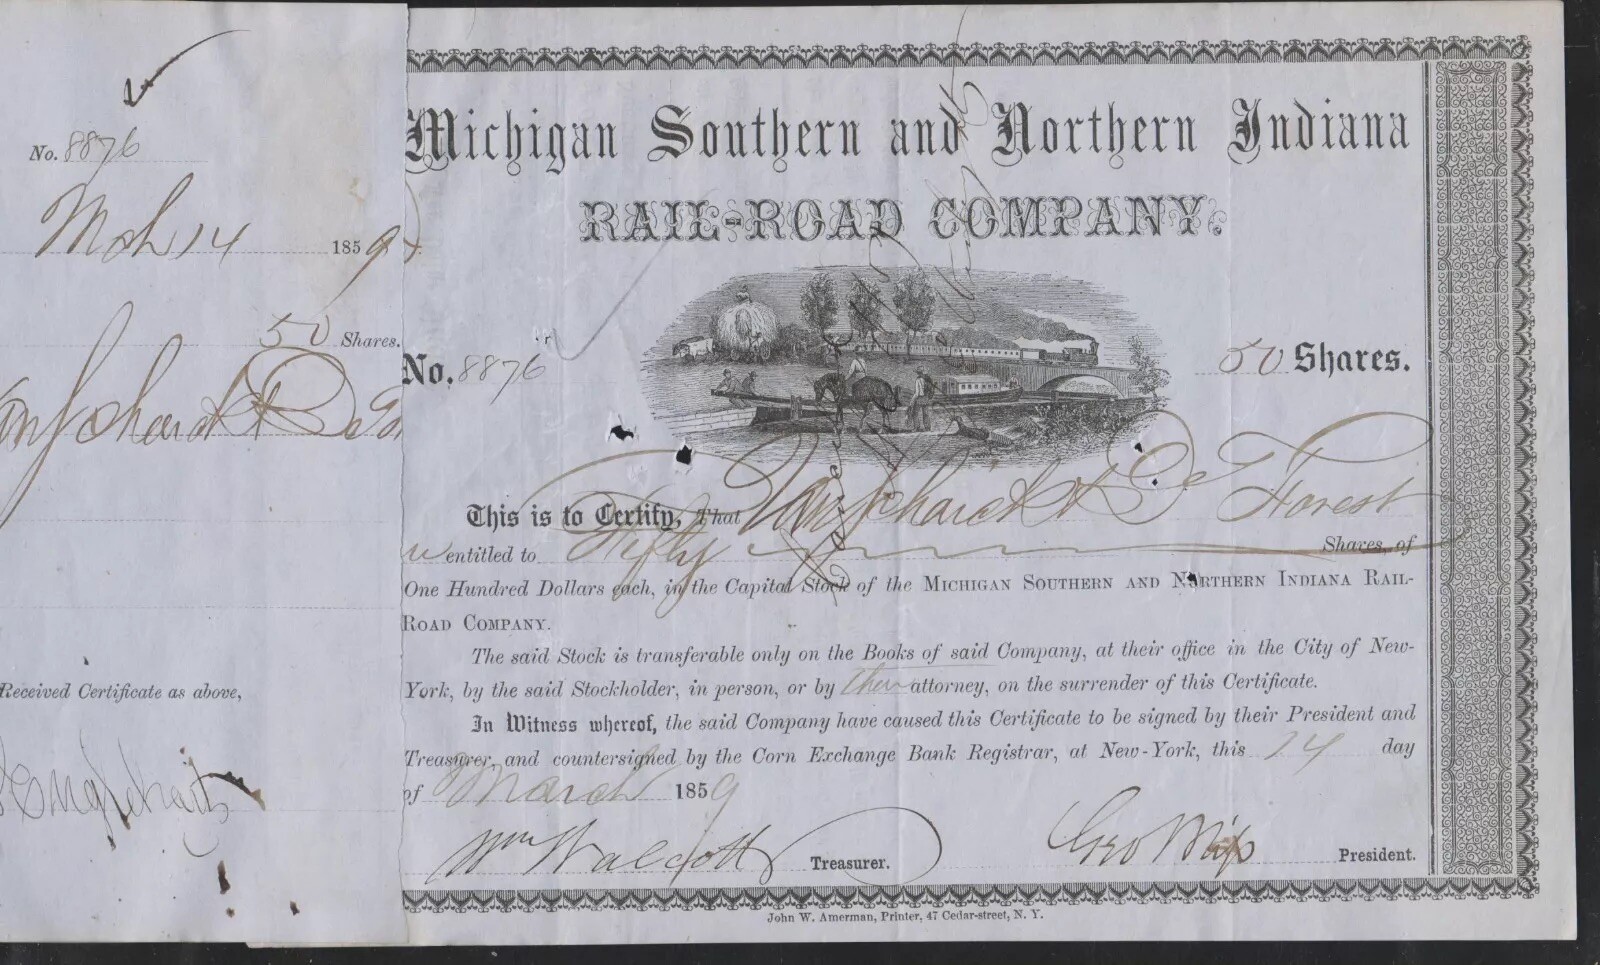 No. 8876
Mch 14 1859
50 Shares.
Received Certificate as above,
Michigan Southern and Northern Indiana
RAIL-ROAD COMPANY.
No. 8876
50 Shares.
This is to Certify, That De Forest
entitled to Fifty Shares, of
One Hundred Dollars each, in the Capital Stock of the MICHIGAN SOUTHERN AND NORTHERN INDIANA RAIL-
ROAD COMPANY.
The said Stock is transferable only on the Books of said Company, at their office in the City of New-
York, by the said Stockholder, in person, or by their attorney, on the surrender of this Certificate.
In Witness whereof, the said Company have caused this Certificate to be signed by their President and
Treasurer, and countersigned by the Corn Exchange Bank Registrar, at New-York, this 14 day
of March 1859
Wm Walcott Treasurer.
Geo Bliss President.
John W. Amerman, Printer, 47 Cedar-street, N. Y.